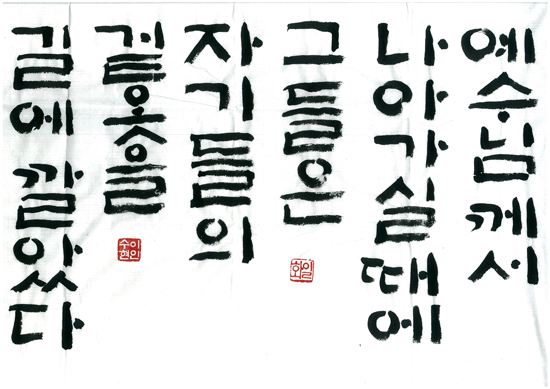 예수님께서
나아가실 때에
그들은
자기들의
겉옷을
길에 깔았다